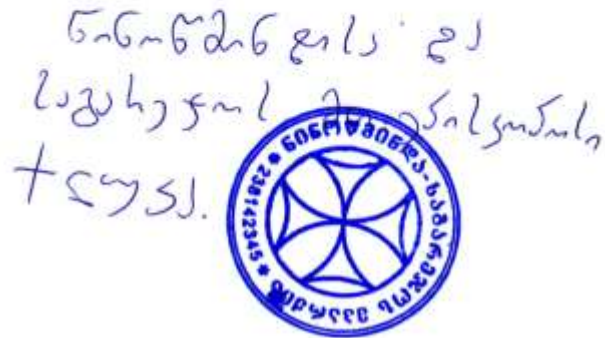 ნინოწმინდისა და
საგარეჯოს მთ. ეპისკოპოსი
+ ლუკა.
ნინოწმინდა-საგარეჯოს ეპარქია * 238142345 *